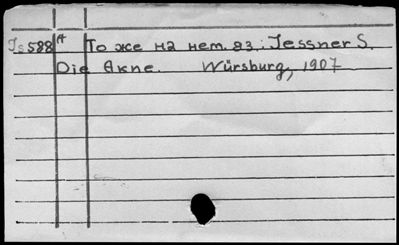 Is 588 A То же на нем. яз.: Jessner S.
Die Akne. Würsburg, 1907